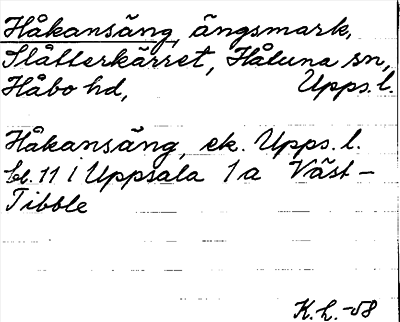 Håkansäng, ängsmark,
Slåtterkärret, Håtuna sn,
Håbo hd, Upps. l.
Håkansäng, ek. Upps. l.
bl. 11 i Uppsala 1a Väst-
Tibble
K.L.-58